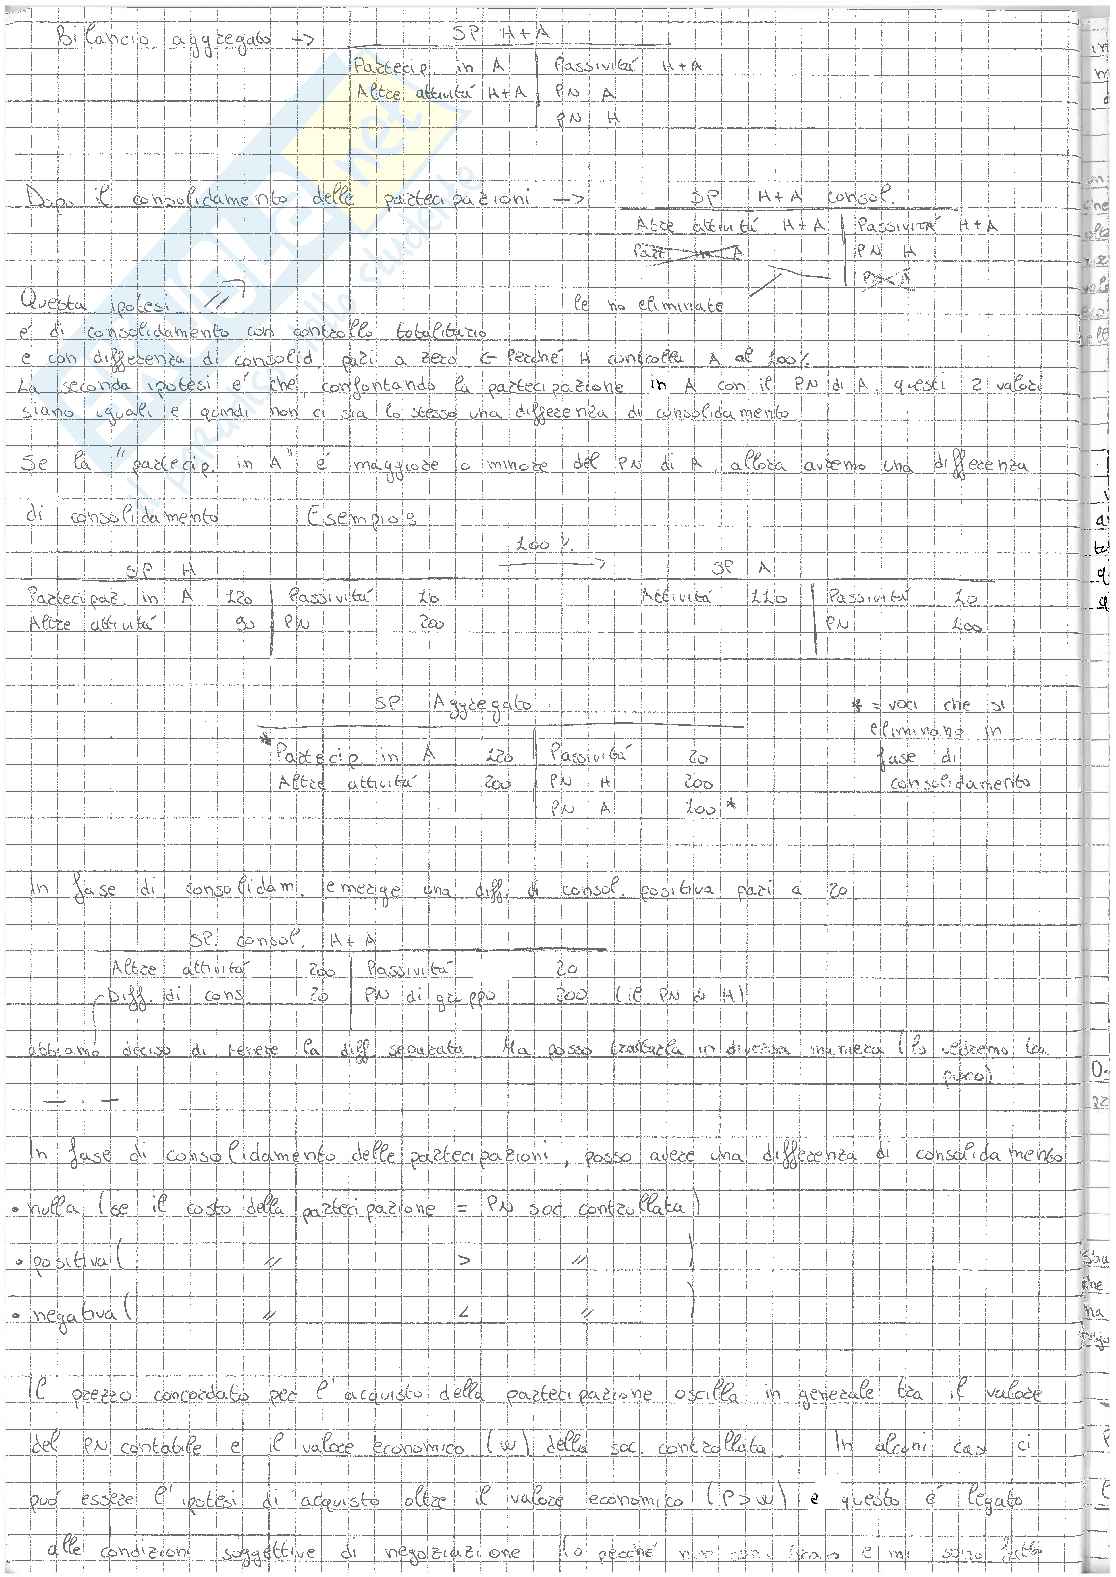 Bilancio aggregato → SP H+A
Partecip. in A | Passività H+A
Altre attività H+A | PN A
PN H
Dopo il consolidamento delle partecipazioni → SP H+A consol.
Altre attività H+A | Passività H+A
Part. in A | PN H
PN A
le ho eliminate
Questa ipotesi
è di consolidamento con controllo totalitario
e con differenza di consolid. pari a zero ← Perché H controlla A al 100%
La seconda ipotesi è che, confontando la partecipazione in A con il PN di A, questi 2 valori
siano uguali e quindi non ci sia lo stesso una differenza di consolidamento
Se la "partecip. in A" è maggiore o minore del PN di A, allora avremo una differenza
di consolidamento Esempio:
100%
SP H SP A
Partecipaz. in A 120 | Passività 10 Attività 110 | Passività 10
Altre attività 90 | PN 200 PN 100
SP Aggregato
* = voci che si
eliminano in
fase di
consolidamento
* Partecip. in A 120 | Passività 20
Altre attività 200 | PN H 200
PN A 100 *
In fase di consolidam. emerge una diff. di consol. positiva pari a 20
SP. consol. H+A
Altre attività 200 | Passività 20
Diff. di cons. 20 | PN di gruppo 200 (il PN di H)
abbiamo deciso di tenere la diff separata. Ma posso trattarla in diversa maniera (lo vedremo tra
poco)
— . —
In fase di consolidamento delle partecipazioni, posso avere una differenza di consolidamento
• nulla (se il costo della partecipazione = PN soc. controllata)
• positiva ( // > // )
• negativa ( // < // )
Il prezzo concordato per l'acquisto della partecipazione oscilla in generale tra il valore
del PN contabile e il valore economico (W) della soc. controllata. In alcuni casi ci
può essere l'ipotesi di acquisto oltre il valore economico (P>W) e questo è legato
alle condizioni soggettive di negoziazione (o perché non e mi sono fatto